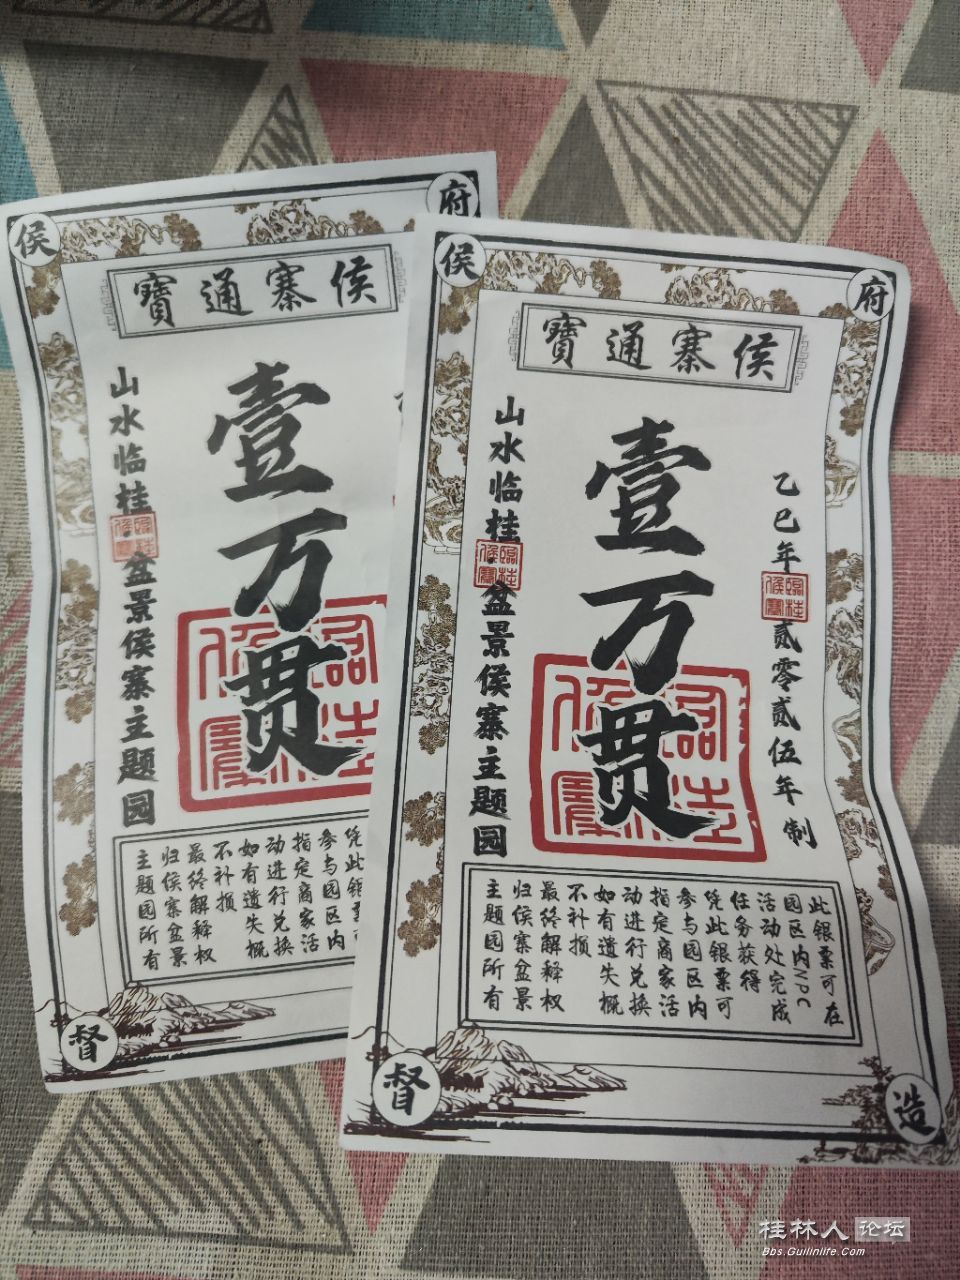 侯
府
侯寨通寳
壹万贯
山水临桂
盆景侯寨主题园
临桂侯寨
凭此银票可
参与园区内
指定商家活
动进行兑换
如有遗失概
不补损
最终解释权
归侯寨盆景
主题园所有
督
侯
府
侯寨通寳
乙巳年
贰零贰伍年制
临桂侯寨
壹万贯
临桂侯寨
山水临桂
盆景侯寨主题园
临桂侯寨
此银票可在
园区内NPC
活动处完成
任务获得
凭此银票可
参与园区内
指定商家活
动进行兑换
如有遗失概
不补损
最终解释权
归侯寨盆景
主题园所有
督
造
桂林人论坛
Bbs.Guilinlife.Com